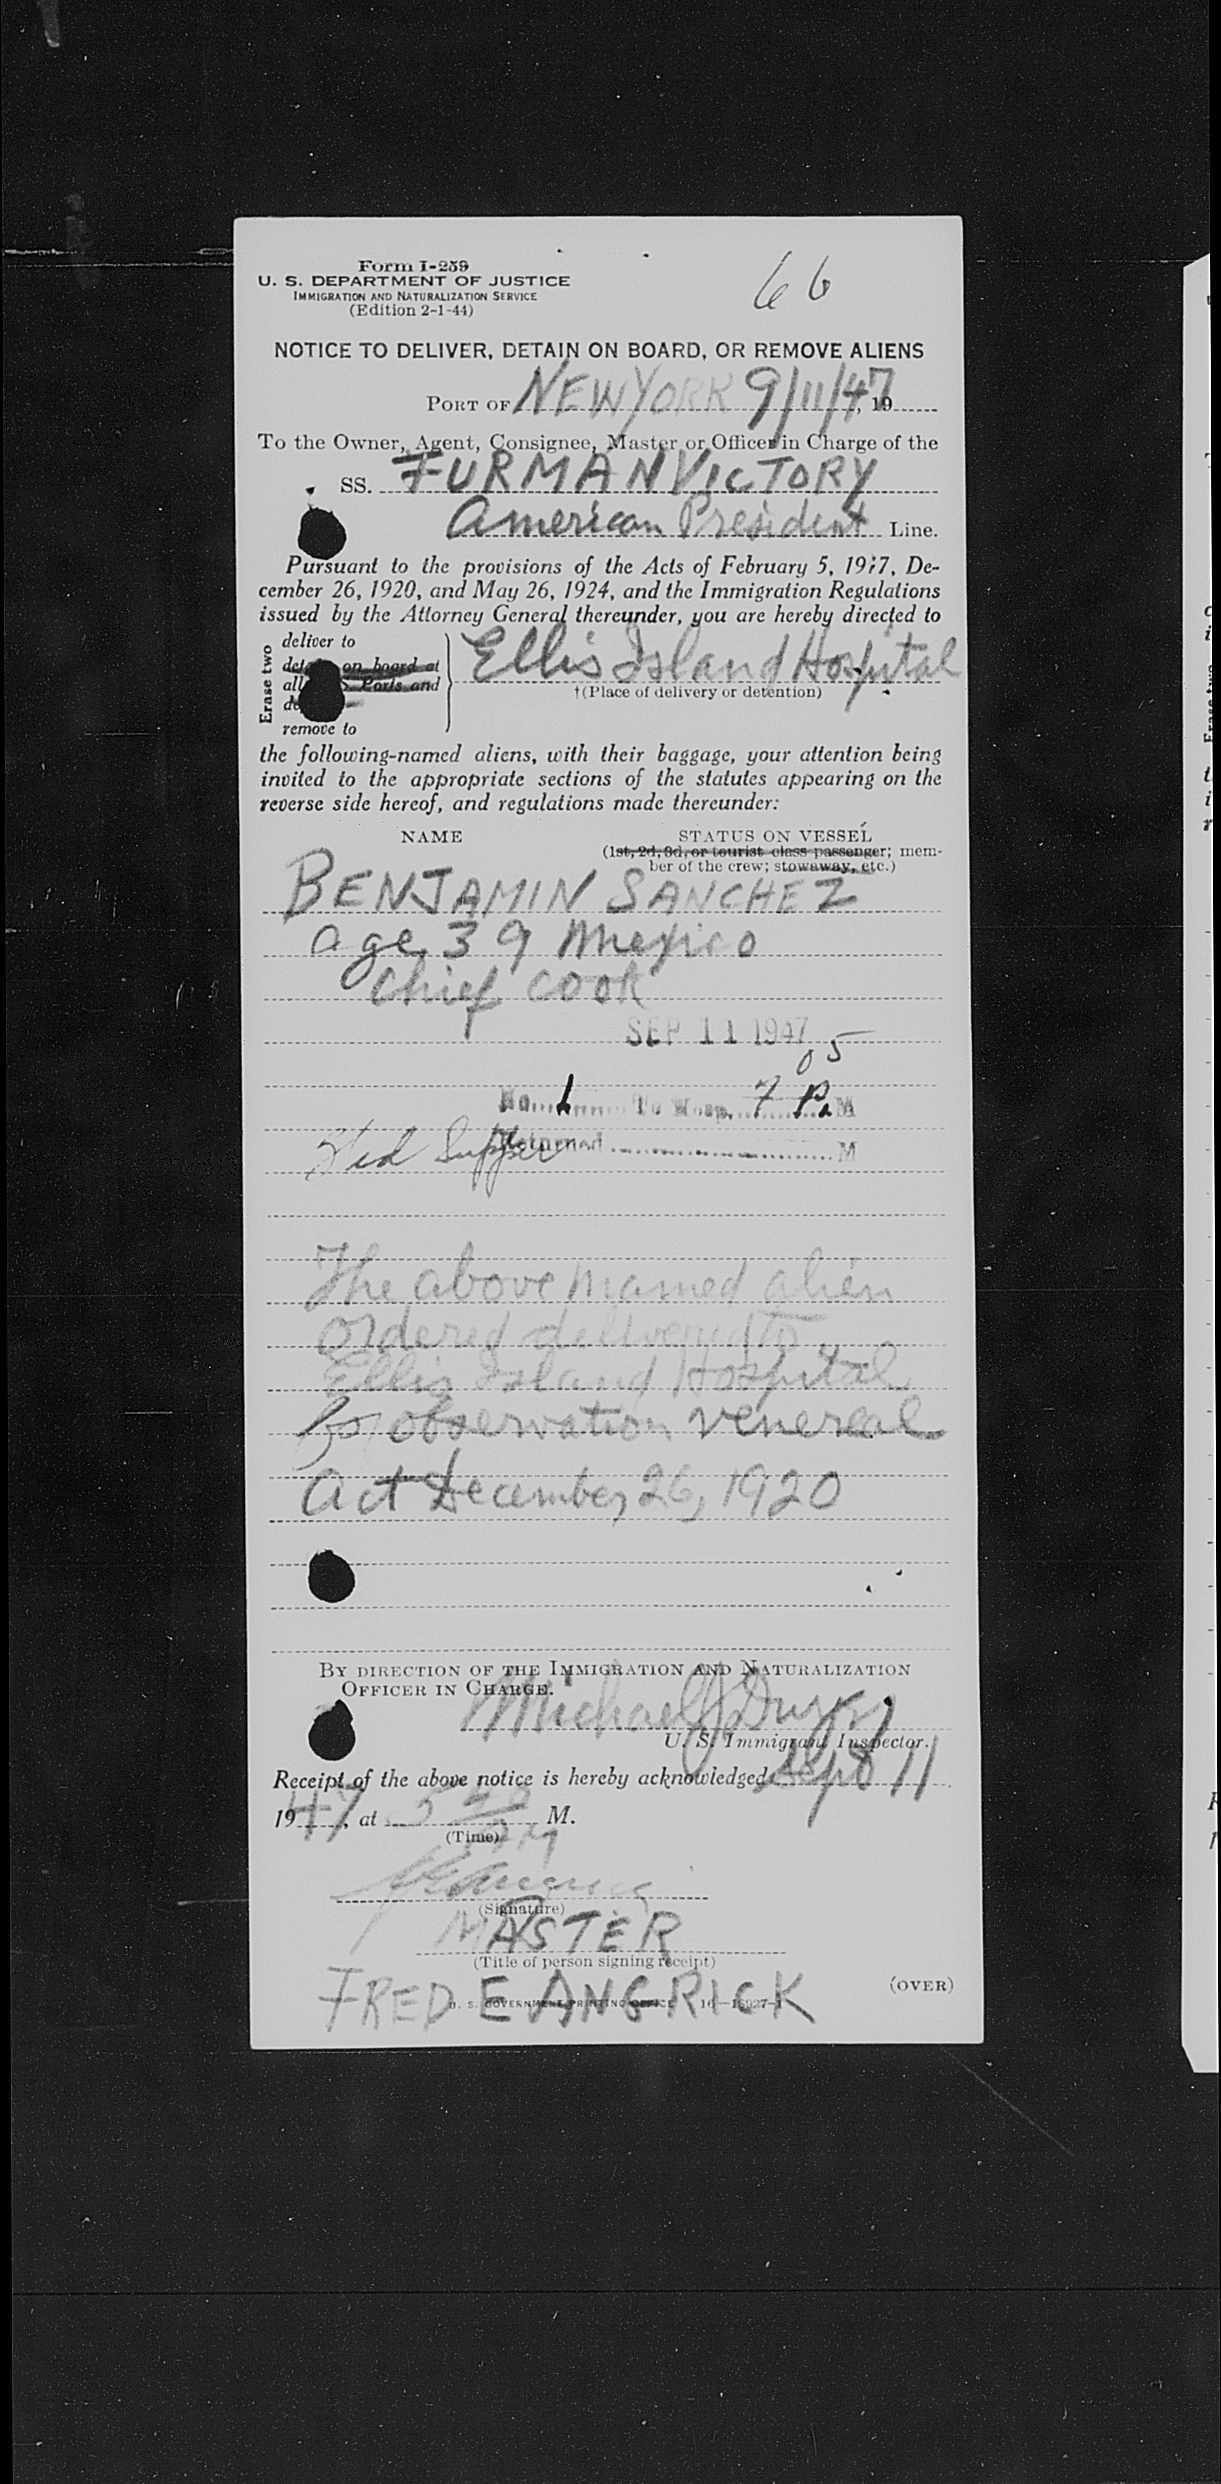 Form I-259
U. S. DEPARTMENT OF JUSTICE
IMMIGRATION AND NATURALIZATION SERVICE
(Edition 2-1-44)
66
NOTICE TO DELIVER, DETAIN ON BOARD, OR REMOVE ALIENS
PORT OF NEW YORK 9/11/47, 19
To the Owner, Agent, Consignee, Master or Officer in Charge of the
SS. FURMAN VICTORY
American President Line.
Pursuant to the provisions of the Acts of February 5, 1917, De-
cember 26, 1920, and May 26, 1924, and the Immigration Regulations
issued by the Attorney General thereunder, you are hereby directed to
Erase two
deliver to
on board at
all S. Ports and
remove to
Ellis Island Hospital
†(Place of delivery or detention)
the following-named aliens, with their baggage, your attention being
invited to the appropriate sections of the statutes appearing on the
reverse side hereof, and regulations made thereunder:
NAME STATUS ON VESSEL
(1st, 2d, 3d, or tourist class passenger; mem-
ber of the crew; stowaway, etc.)
BENJAMIN SANCHEZ
age 39 Mexico
Chief Cook
SEP 11 1947
No. 1 To Hosp. 7 05 P. M
Returned M
Had Supper
The above named alien
ordered delivered to
Ellis Island Hospital
for observation venereal
Act December 26, 1920
BY DIRECTION OF THE IMMIGRATION AND NATURALIZATION
OFFICER IN CHARGE.
Michael J
U. S. Immigrant Inspector.
Receipt of the above notice is hereby acknowledged Sept 11
1947, at 5 M.
(Time)
(Signature)
MASTER
(Title of person signing receipt)
FRED E ANGRICK
(OVER)
U. S. GOVERNMENT PRINTING OFFICE 16—18927-1